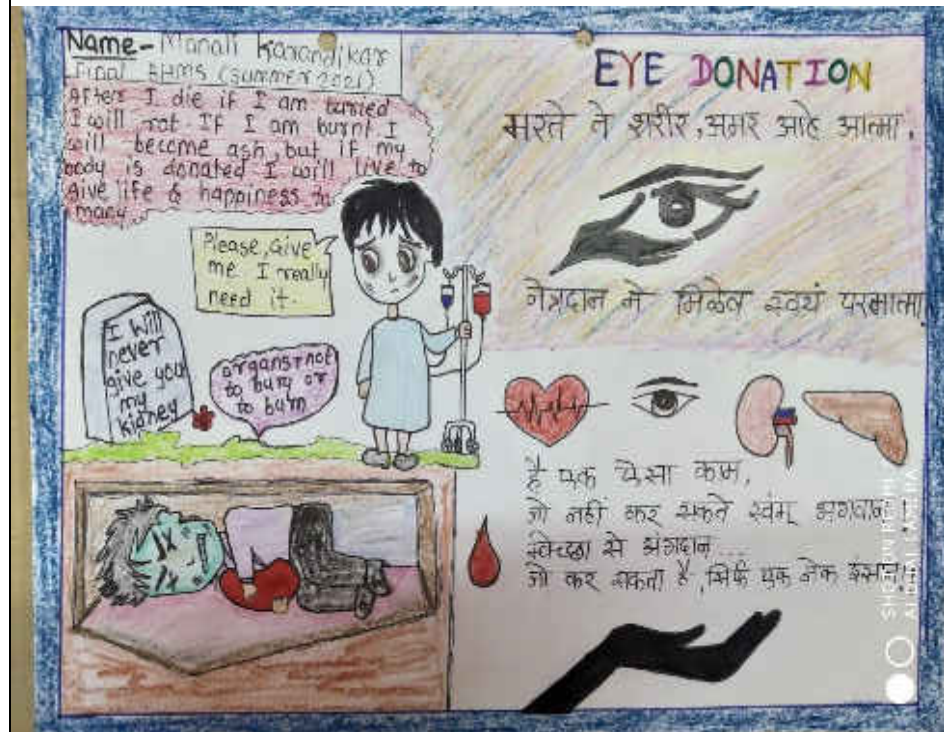 Name- Manali Karandikar
Final BHMS (Summer 2021)
After I die if I am buried
I will rot. If I am burnt I
will become ash, but if my
body is donated I will live to
give life & happiness to
many
Please, Give
me I really
need it.
I Will
never
give you
my
kidney
organs r not
to bury or
to burn
EYE DONATION
मरते ते शरीर, अमर आहे आत्मा.
नेत्रदान ने मिळेल स्वयं परमात्मा
है एक ऐसा काम,
जो नहीं कर सकते स्वंम् भगवान
स्वेच्छा से अंगदान...
जो कर सकता है, सिर्फ एक नेक इंसान